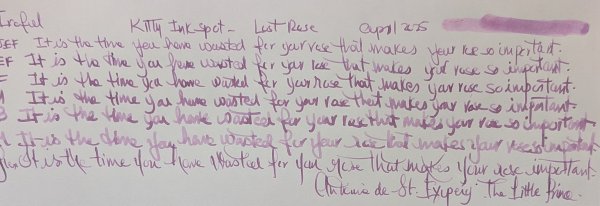 Kitty Ink spot - Lost Rose April 2025
EF It is the time you have wasted for your rose that makes your rose so important.
EF It is the time you have wasted for your rose that makes your rose so important.
F It is the time you have wasted for your rose that makes your rose so important.
M It is the time you have wasted for your rose that makes your rose so important.
B It is the time you have wasted for your rose that makes your rose so important.
It is the time you have wasted for your rose that makes your rose so important
It is the time you have wasted for your rose that makes your rose important.
Antoine de St. Exupery The Little Prince.